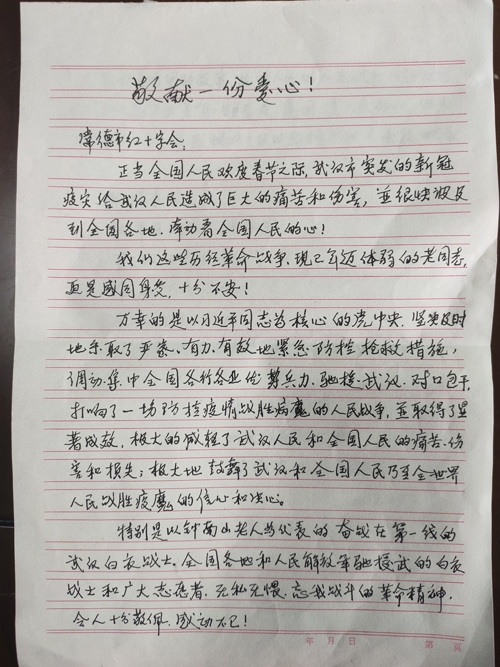 敬献一份爱心!
常德市红十字会:
正当全国人民欢度春节之际,武汉市突发的新冠
疫灾给武汉人民造成了巨大的痛苦和伤害,并很快波及
到全国各地.牵动着全国人民的心!
我们这些历经革命战争、现已年迈体弱的老同志,
更是感同身受,十分不安!
万幸的是以习近平同志为核心的党中央.坚决及时
地采取了严密、有力、有效地紧急防控抢救措施,
调动.集中全国各行各业优势兵力.驰援武汉.对口包干,
打响了一场防控疫情战胜病魔的人民战争,並取得了显
著成效.极大的减轻了武汉人民和全国人民的痛苦、伤
害和损失;极大地鼓舞了武汉和全国人民乃至全世界
人民战胜疫魔的信心和决心。
特别是以钟南山老人为代表的奋战在第一线的
武汉白衣战士.全国各地和人民解放军驰援武汉的白衣
战士和广大志愿者.无私无惧.忘我战斗的革命精神.
令人十分敬佩.感动不已!
年 月 日 第 页